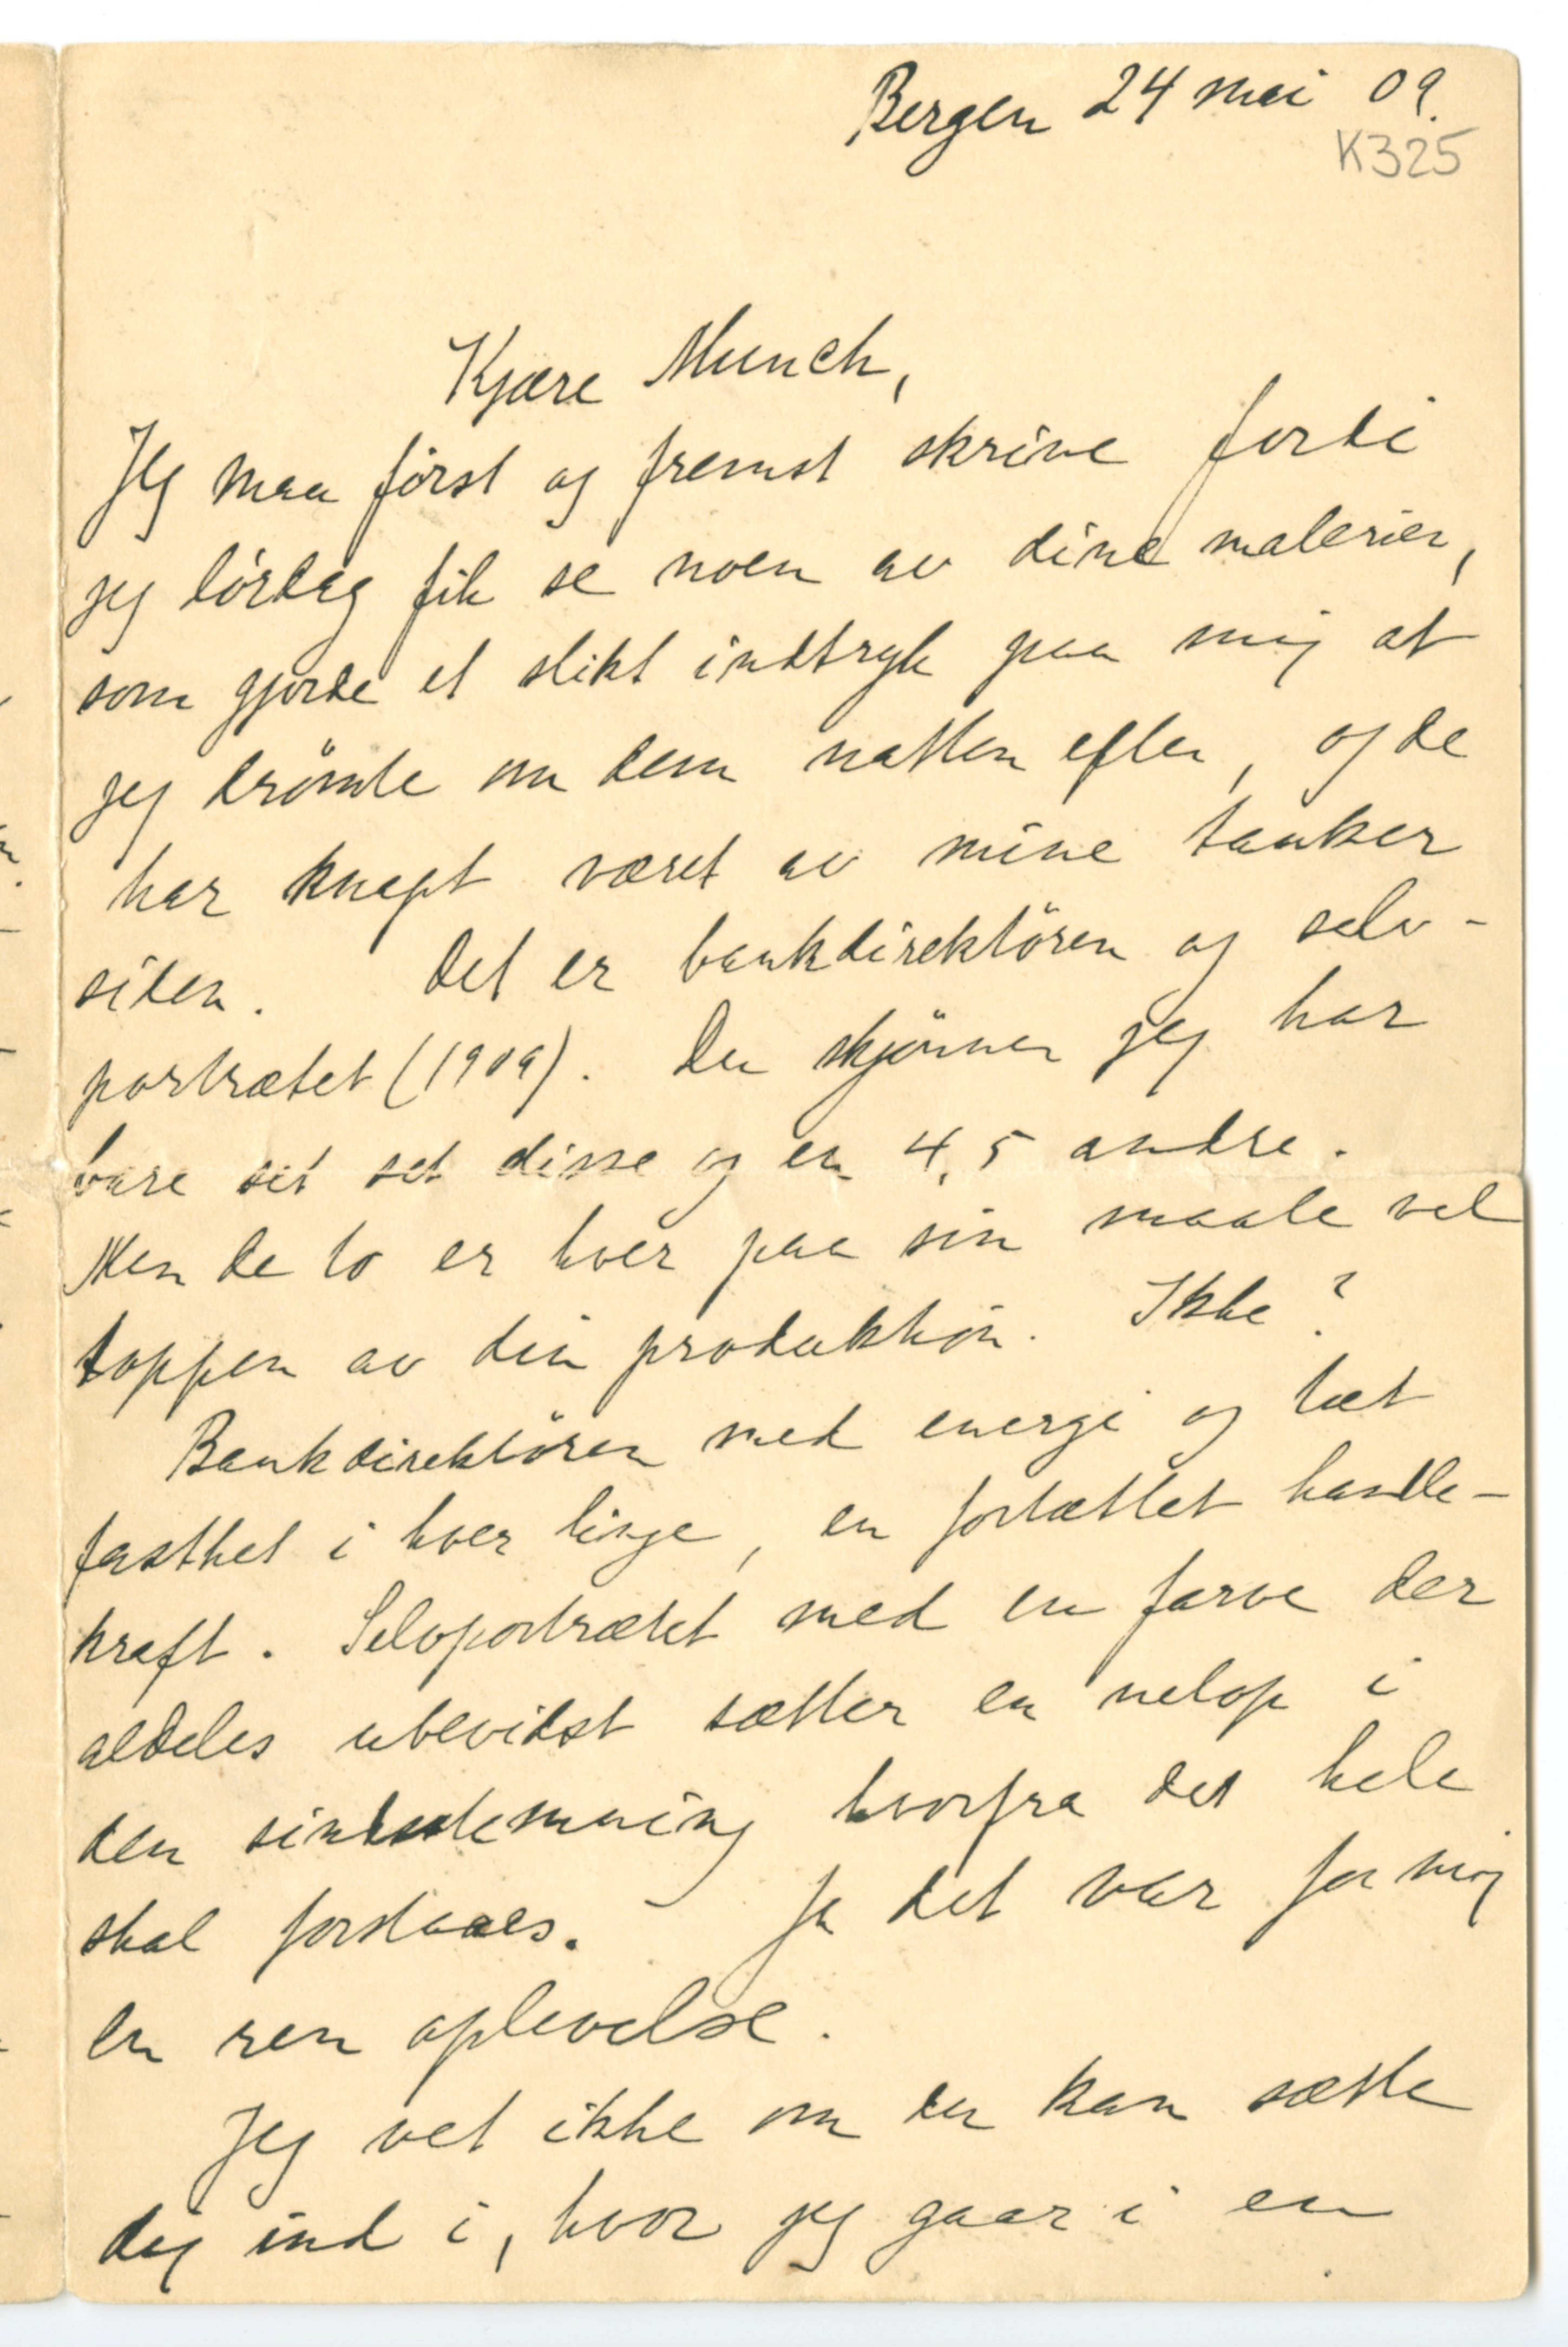 Bergen 24 mai 09.
K325
Kjære Munch,
Jeg maa först og fremst skrive fordi
jeg lördag fik se noen av dine malerier,
som gjorde et slikt indtryk paa mig at
jeg drömte om dem natten efter, og de
har knapt været av mine tanker
siden. Det er bankdirektören og selv-
portrætet (1909). Du skjönner jeg har
bare set disse og en 4, 5 andre.
Men de to er hver paa sin maate vel
toppen av din produktion. Ikke?
Bankdirektören med energi og tæt
fasthet i hver linje, en fortættet handle-
kraft. Selvportrætet med en farve der
aldeles ubevidst sætter en netop i
den sindsstemning hvorfra det hele
skal forstaaes. Ja det var for mig
en ren oplevelse.
Jeg vet ikke om du kan sætte
dig ind i, hvor jeg gaar i en